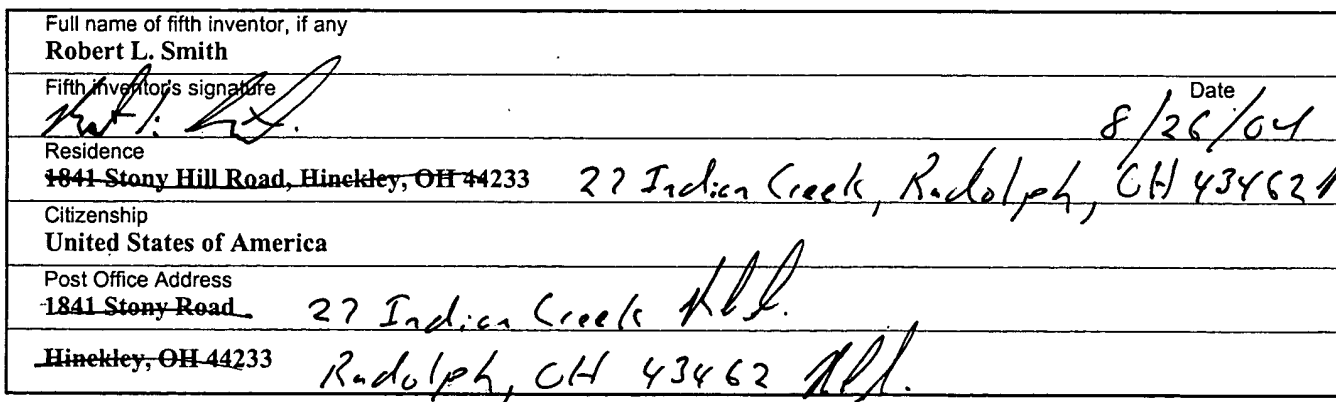 Full name of fifth inventor, if any
Robert L. Smith
Fifth inventor's signature
Date
8/26/04
Residence
1841 Stony Hill Road, Hinckley, OH 44233 27 Indian Creek, Rudolph, OH 43462
Citizenship
United States of America
Post Office Address
1841 Stony Road 27 Indian Creek
Hinckley, OH 44233 Rudolph, OH 43462